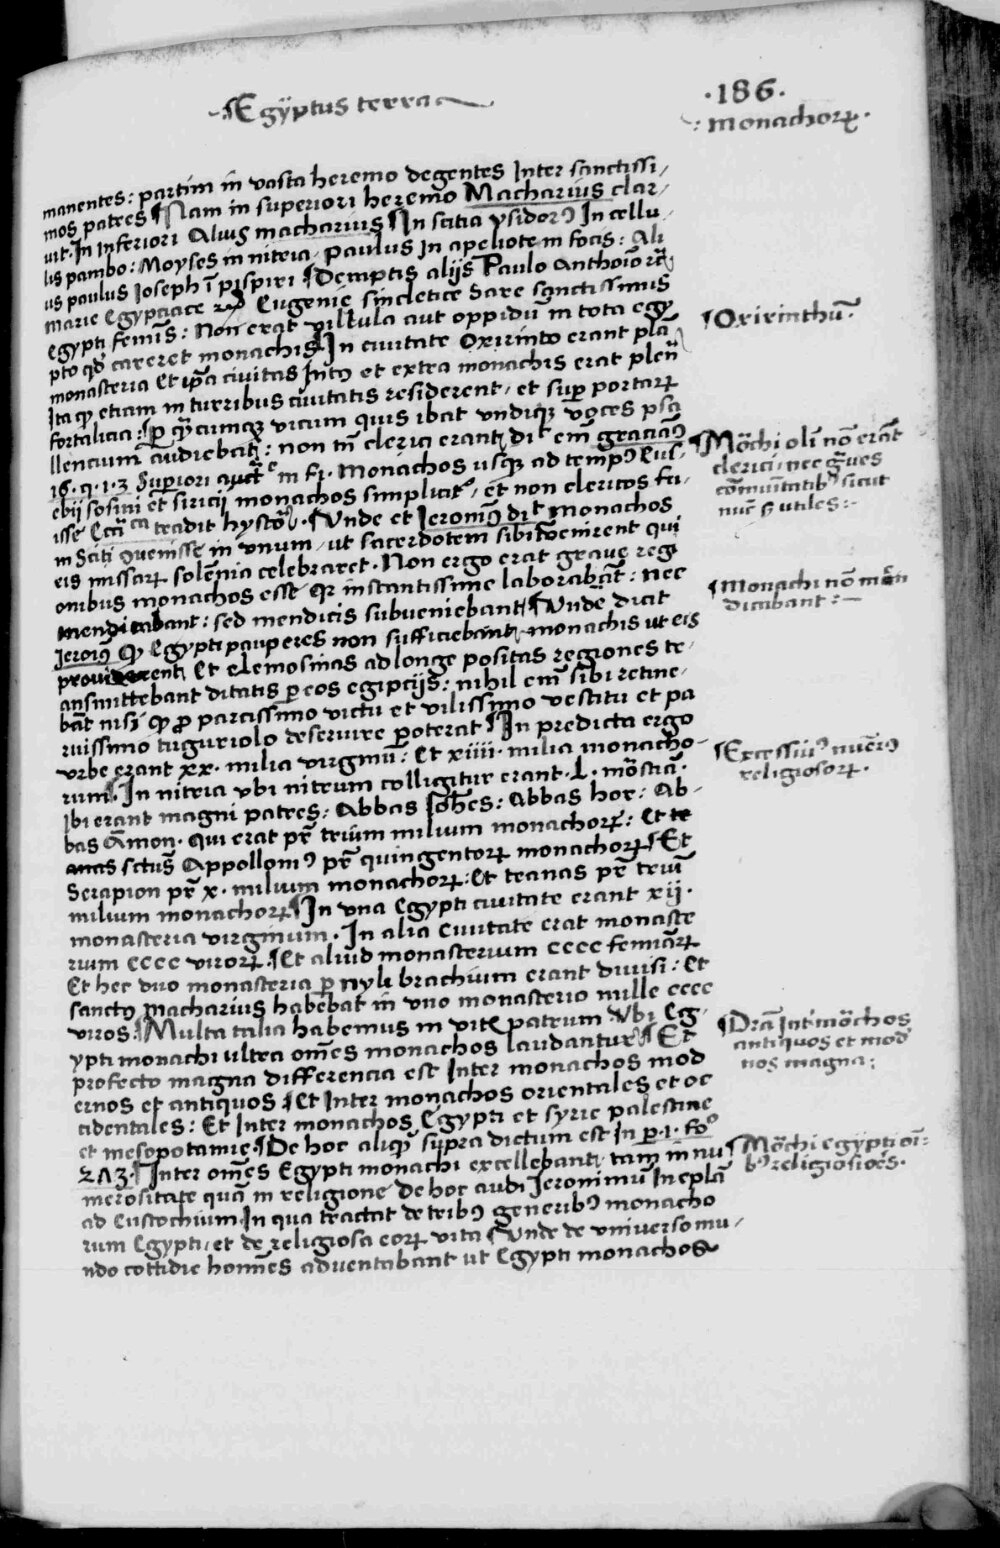 Egÿptus terra
·186·
: monachoꝝ·
manentes: partim in vasta heremo degentes Inter sanctissi/
mos patres ¶ Nam in superiori heremo Macharius clar/
uit· In Inferiori Alius macharius ¶ In scitia ysidorꝰ In cellu/
lis pambo: Moyses in nitria, paulus In apeliote in focis: Ali
us paulus Joseph ī pispiri ¶ Demptis alijs Paulo Anthoīo
marie Egyptiace Eugenie sincletice Sare sanctissimis
Egypti feminīs: Non erat villula aut oppidū in tota egy
pto qđ careret monachis ¶ In ciuitate Oxirinto erant plā
monasteria Et ip̄a ciuitas Intꝰ et extra monachis erat plen
Ita ꝙ etiam in turribus ciuitatis residerent, et sup portarꝝ
fortalicia: ꝑ vicum quis ibat vndiqꝫ voces psa
llencium audiebat: non tn̄ clerici erant, di͛ em̄ gracianꝰ
16·q·1·3 Superiori in fi· Monachos vsqꝫ ad tempꝰ Eus/
ebij sosini et siricij monachos simplicit͛, et non clericos fu/
isse tradit hystor· ¶ Vnde et Jeronimꝰ di͛ monachos
in Sciti quenisse in vnum, ut sacerdotem sibi Inuenirent qui
eis missarꝝ solēnia celebraret· Non ergo erat graue regi
onibus monachos esse qꝛ instantissime laborabāt: nec
mendicabant: sed mendicis subueniebant ¶ Vnde dicit
Jeroīꝰ ꝙ Egypti pauperes non sufficiebant monachis ut eis
prouiderent, Et elemosinas ad longe positas regiones tr/
ansmittebant ditatis ꝑ eos egipcijs: nihil em̄ sibi retine/
bāt nisi ꝙ ꝓ parcissimo victu et vilissimo vestitu et pa
ruissimo tuguriolo deseruire poterat ¶ In predicta ergo
vrbe erant xx· milia virginū: Et xiiii· milia monacho/
rum ¶ In nitria vbi nitrum colligitur erant ·L· mōstiā·
Ibi erant magni patres: Abbas Johēs: Abbas hor: Ab/
bas Āmon· qui erat pr̄ trium milium monachoꝝ: Et te
anas sctūs Appolloniꝰ pr̄ quingentorꝝ monachoꝝ ¶ Et
Serapion pr̄ x· milium monachoꝝ: Et teanas pr̄ triū
milium monachoꝝ ¶ In vna Egypti ciuitate erant xij·
monasteria virginum· In alia Ciuitate erat monaste
rium cccc viroꝝ· ¶ Et aliud monasterium cccc feminarꝝ
Et hec duo monasteria ꝑ nyli brachium erant diuisi: Et
sanctꝰ Macharius habebat in vno monasterio mille cccc
viros· ¶ Multa talia habemus in vitꝭ patrum Vbi Eg/
ypti monachi vltra om̄es monachos laudantur ¶ Et
profecto magna differencia est Inter monachos mod
ernos et antiquos ¶ Et Inter monachos orientales et oc
cidentales: Et Inter monachos Egypti et syrie palestine
et mesopotamie ¶ De hoc aliqͥ supra dictum est In p·1· foͦ
2Λ3· ¶ Inter om̄es Egypti monachi excellebant, tam in nu
merositate quā in religione De hoc audi Jeronimū In eplā
ad Eustochium In qua tractat de tribꝰ generibꝰ monacho
rum Egypti, et de religiosa eorꝝ vita ¶ Vnde de vniuerso mu/
ndo cottidie homines aduentabant ut Egypti monachos
¶ Oxirinthū·
¶ Mōchi olī nō erāt
clerici, nec g̃ues
cōmunītatibꝰ sicut
nūc sꝫ vtiles:-
¶ Monachi nō mēn
dicabant:-
¶ Excessiuꝰ nuērꝰ
religiosorꝝ·
¶ Drā Int͛ mōchos
antiquos et mod
nos magna:
¶ Mōchi egÿpti oī:
bꝰ religiosiōēs·